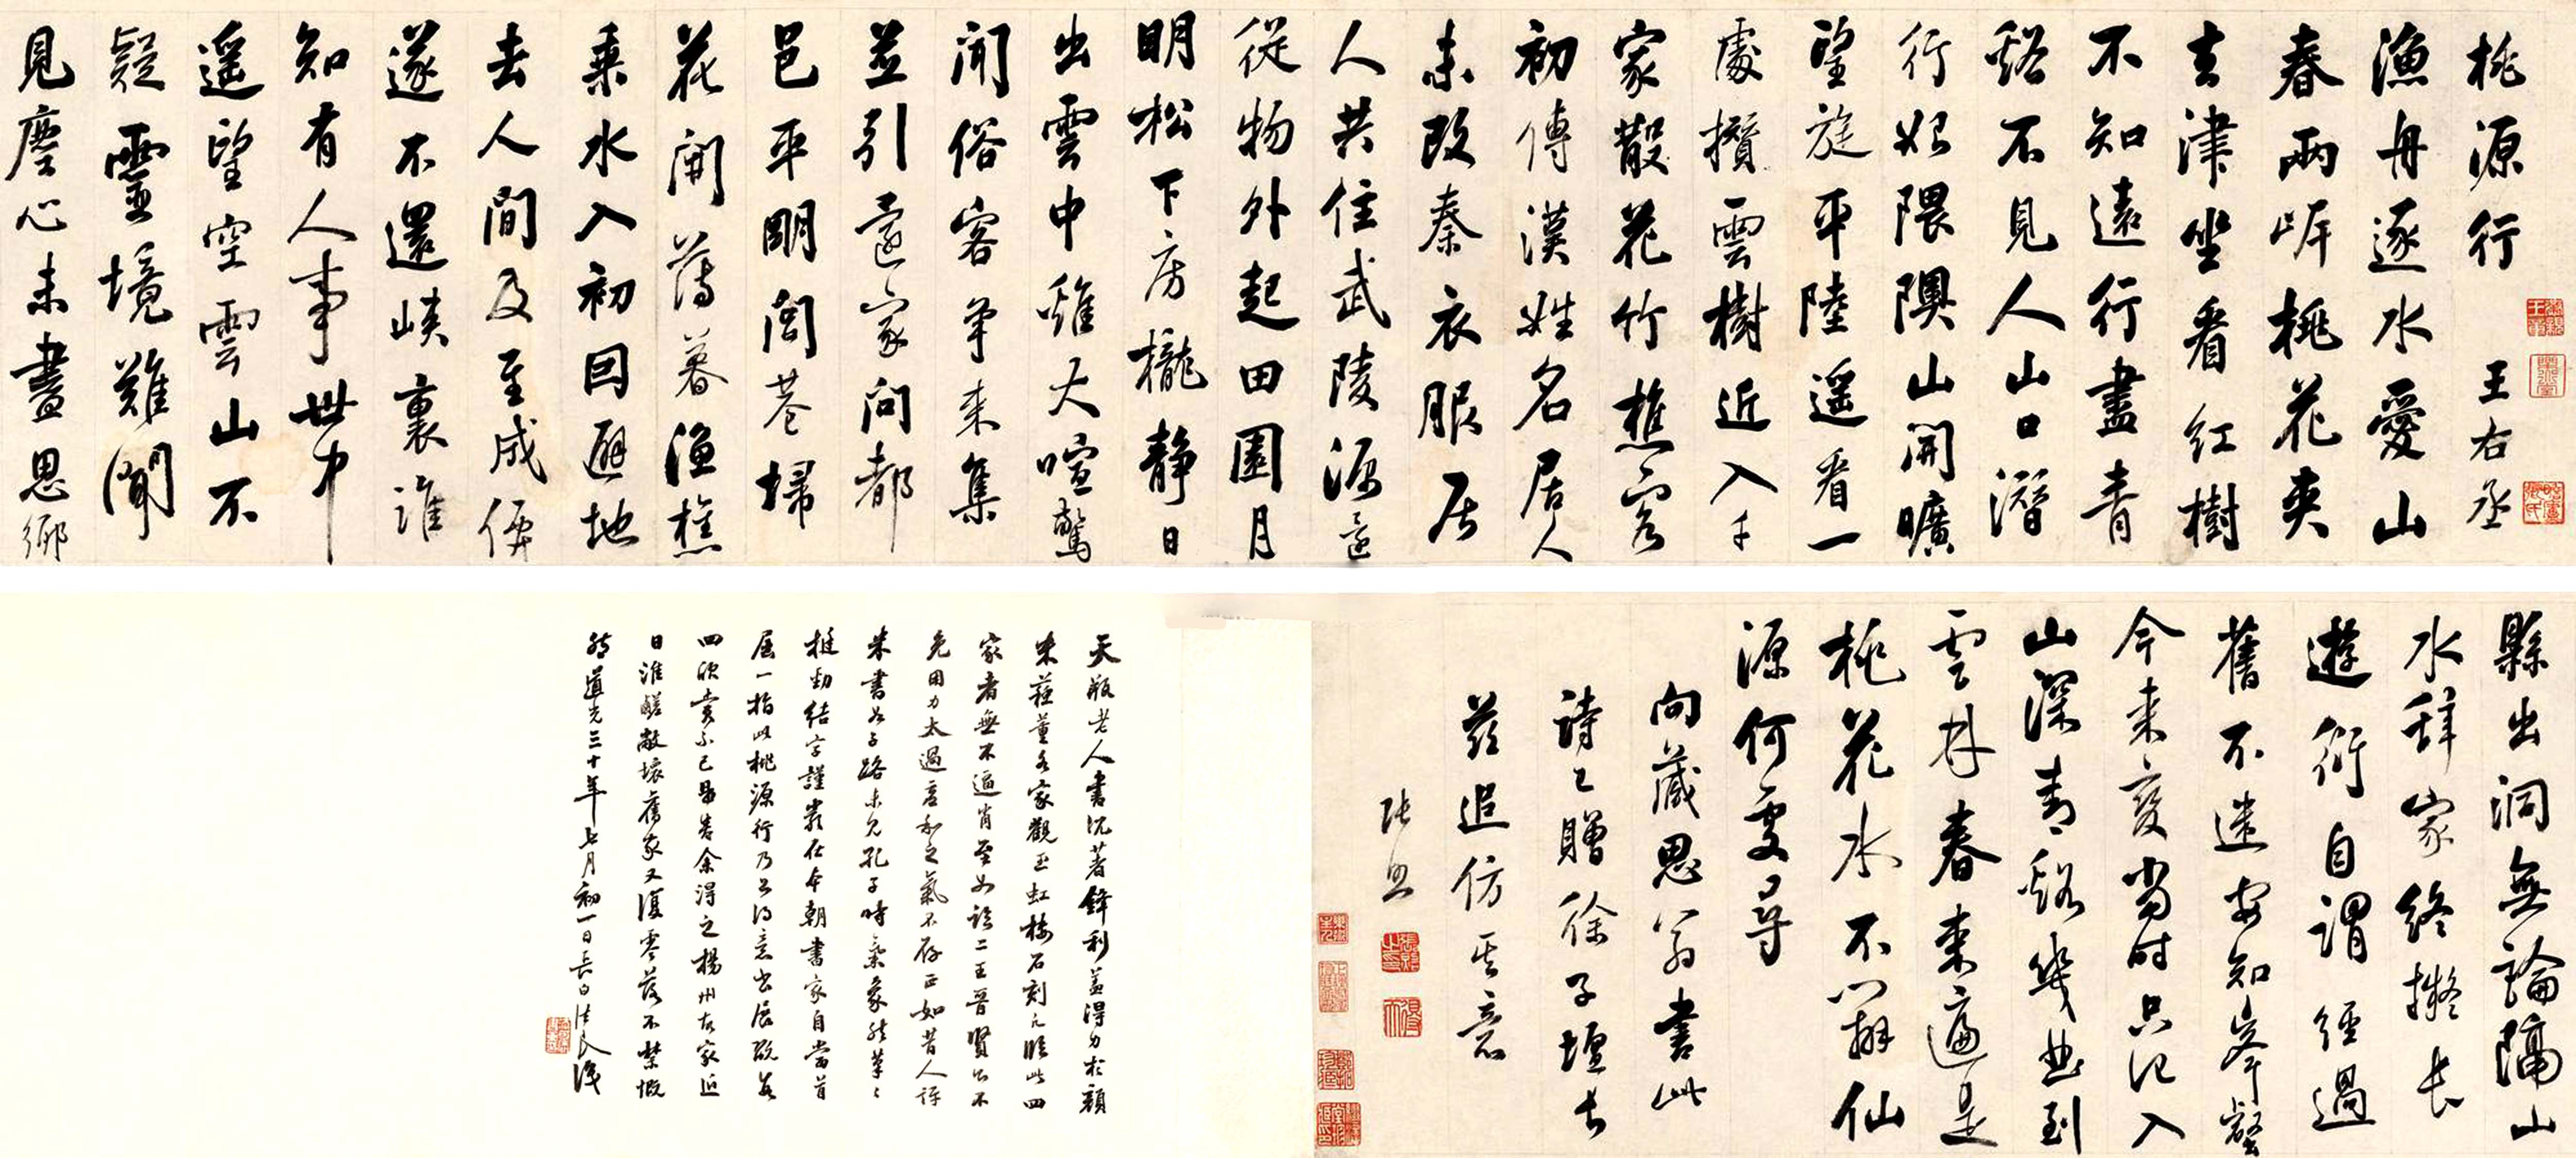 桃源行
王右丞
漁舟逐水愛山
春兩岸桃花夾
去津坐看紅樹
不知遠行盡青
谿不見人山口潛
行始隈隩山開曠
望旋平陸遥看一
處攢雲樹近入千
家散花竹樵客
初傳漢姓名居人
未改秦衣服居
人共住武陵源還
從物外起田園月
明松下房櫳静日
出雲中雞犬喧驚
聞俗客爭来集
並引還家問都
邑平明閭巷掃
花開薄暮漁樵
乗水入初因避地
去人間及至成仙
遂不還峡裏誰
知有人事世中
遥望空雲山不
疑靈境難聞
見塵心未盡思鄉
縣出洞無論隔山
水辞家終擬長
遊衍自謂經過
舊不迷安知峯壑
今来變當時只记入
山深青谿幾曲到
雲林春来遍是
桃花水不辨仙
源何處尋
向藏思翁書此
詩已贈徐子壇長
兹追仿其意
張照
天瓶老人書沉著鋒利蓋得力於顔
米蘇董各家觀玉虹樓石刻凡臨此四
家者無不逼肖至如臨二王晉賢公不
免用力太過吝和之氣不存正如昔人评
米書如子路未見孔子時氣象然筆〻
挺勁结字謹嚴在本朝書家自當首
屈一指此桃源行乃公得意書展翫数
四欣賞不已是卷余得之揚州故家近
日淮鹺敝壞舊家又復零落不禁慨
然道光三十年七月初一日長白法良識